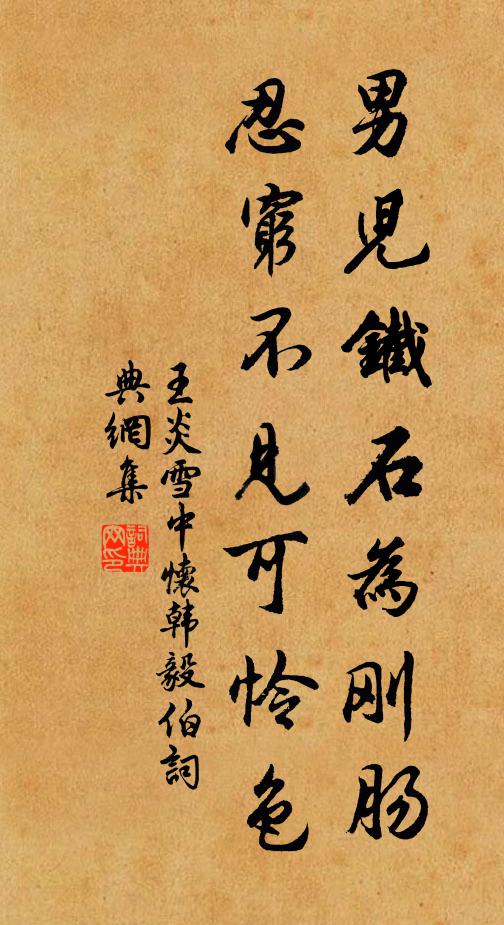 男兒鐵石為刚肠
忍窮不見可怜色
王炎雪中懷韩毅伯詞
典網集
詞典网印